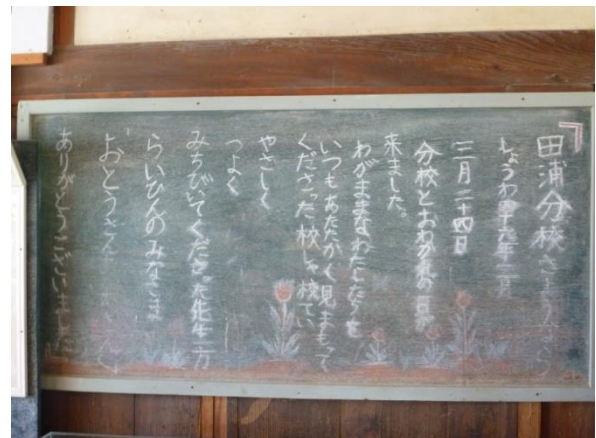 「田浦分校さようなら
しょうわ四十六年三月
三月二十四日
分校とおわかれの日が
来ました。
わがままなわたしたちを
いつもあたたかく見まもって
くださった校しゃ校てい
やさしく
つよく
みちびいてくださった先生方
らいひんのみなさま
おとうさん
ありがとうございました